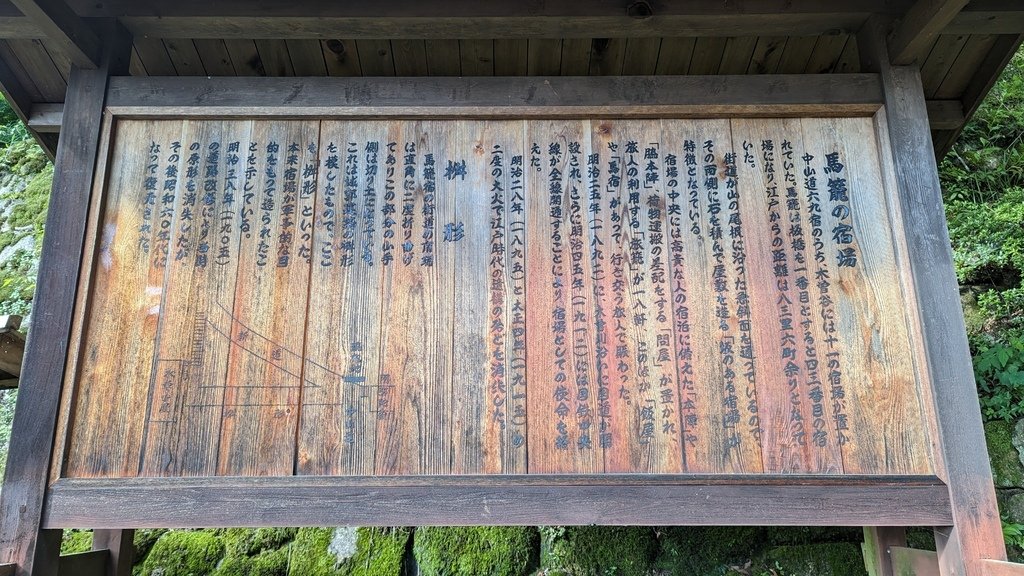 馬籠の宿場
中山道六九宿のうち、木曽谷には十一の宿場が置か
れていた。馬籠は板橋を一番目とすると四三番目の宿
場になり江戸からの距離は八三里六町余りとなって
いた。
街道が山の尾根に沿った急斜面を通っているので、
その両側に石を積んで屋敷を造る「坂のある宿場」が
特徴となっている。
宿場の中央には高貴な人の宿泊に備えた「本陣」や
「脇本陣」、荷物運搬の差配をする「問屋」が置かれ、
旅人の利用する「旅籠」が一八軒、このほか「飯屋」
や「馬宿」があって、行き交う旅人で賑わった。
明治二五年(一八九二)に木曽川沿いに国道が開
設され、さらに明治四五年(一九一二)には国鉄中央
線が全線開通することにより宿場としての使命を終
えた。
明治二八年(一八九五)と大正四年(一九一五)の
二度の大火で江戸時代の遺構の殆どを消失した。
桝形
馬籠宿の街道が宿場
は直角に二度折り曲げ
てありこの部分の山手
側は切り立っている。
これは城郭建築の桝形
を模したもので、ここ
も「桝形」といった。
本来宿場が軍事的な目
的をもって造られたこ
とを示している。
明治三八年(一九〇五)
の道路改修により当初
の原形を消失したが
その後昭和六〇年代に
なって復元された。
新道